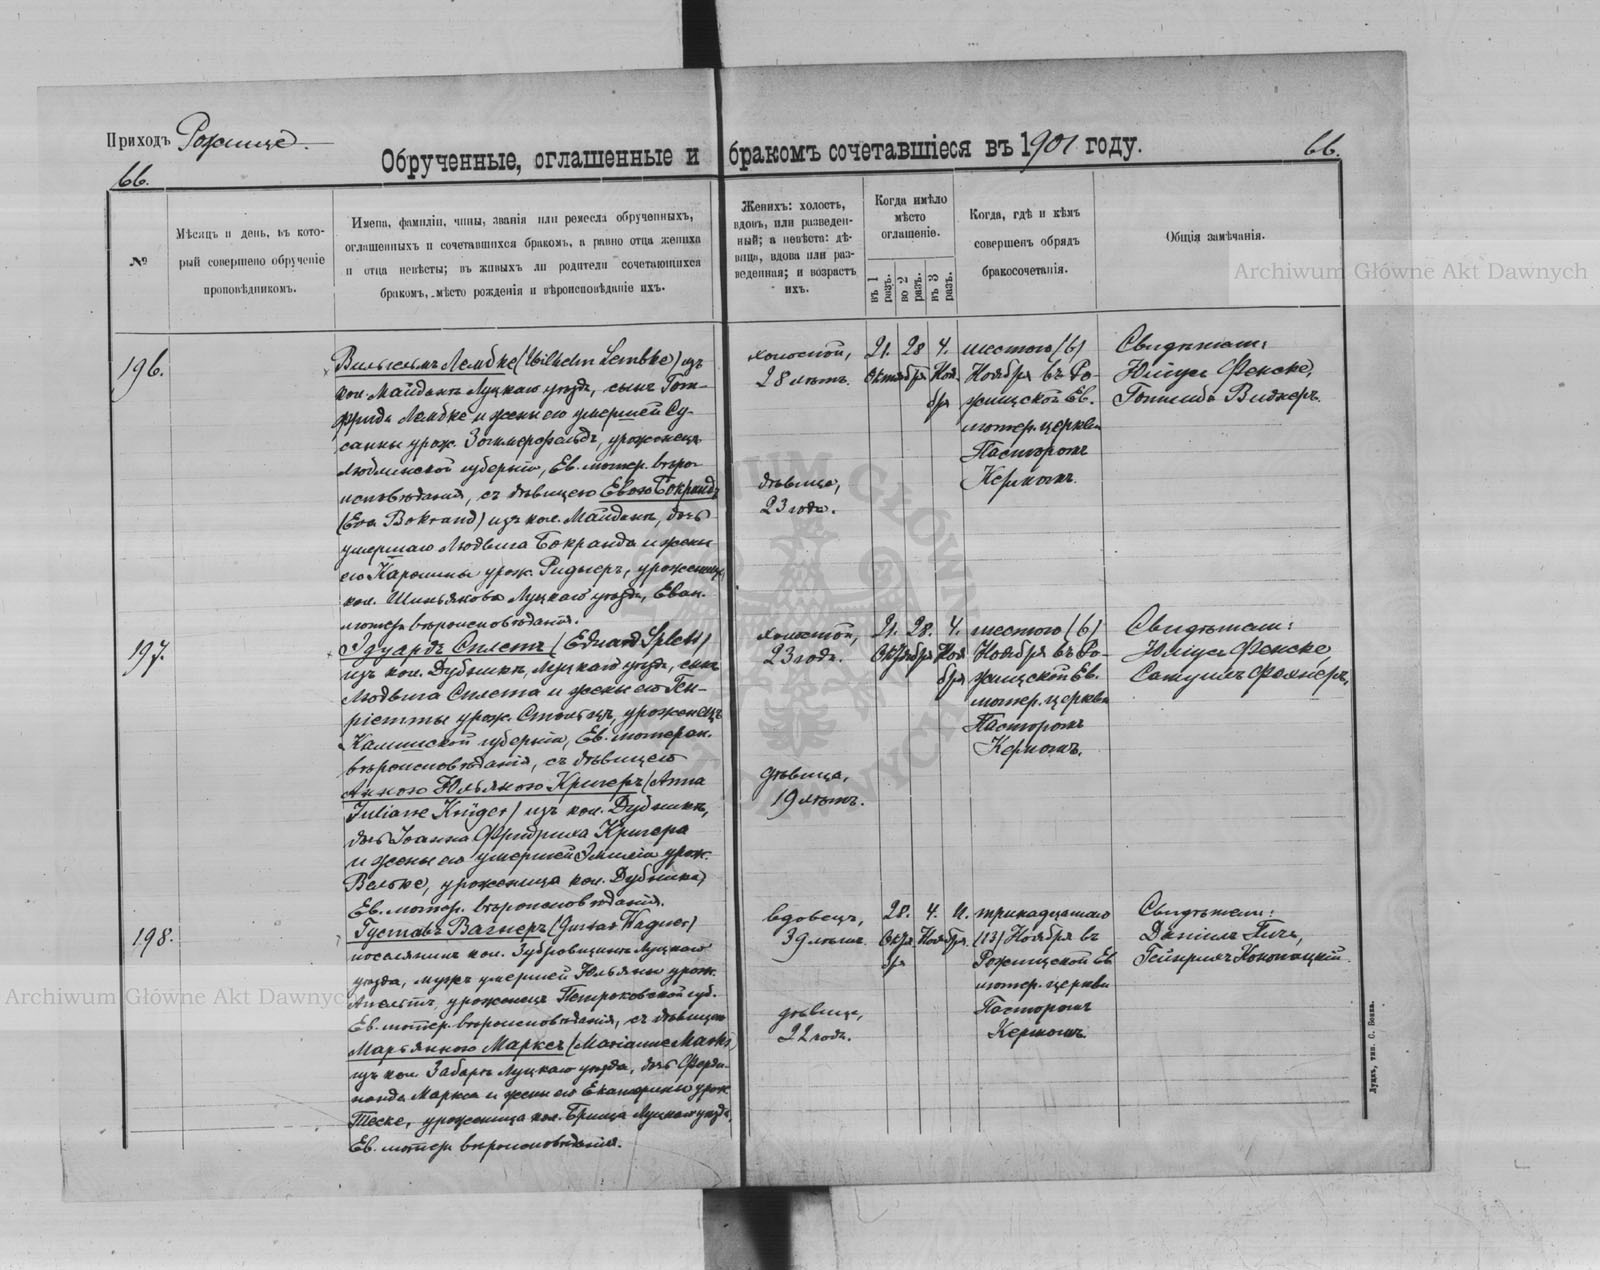 Приходъ Рожище.
Обрученные, оглашенные и бракомъ сочетавшіеся въ 1901 году.
66.
66.
№
Мѣсяцъ и день, въ кото-
рый совершено обрученіе
проповѣдникомъ.
Имена, фамиліи, чины, званія или ремесла обрученныхъ,
оглашенныхъ и сочетавшихся бракомъ, а равно отца жениха
и отца невѣсты; въ живыхъ ли родители сочетающихся
бракомъ, мѣсто рожденія и вѣроисповѣданіе ихъ.
Женихъ: холостъ,
вдовъ, или разведен-
ный; а невѣста: дѣ-
вица, вдова или раз-
веденная; и возрастъ
ихъ.
Когда имѣло
мѣсто
оглашеніе.
въ 1 разъ.
во 2 разъ.
въ 3 разъ.
Когда, гдѣ и кѣмъ
совершенъ обрядъ
бракосочетанія.
Общія замѣчанія.
196.
Вильгельмъ Лембке (Wilhelm Lembke) изъ
кол. Майданъ Луцкаго уѣзда, сынъ Гот-
фрида Лембке и жены его умершей Су-
санны урож. Зоммерфельдъ, уроженецъ
Люблинской губерніи, Ев. лютер. вѣро-
исповѣданія, съ дѣвицею Евою Бокрандъ
(Eva Bokrand) изъ кол. Майданъ, дочь
умершаго Людвига Бокранда и жены
его Каролины урож. Ридигеръ, уроженица
кол. Шинъякова Луцкаго уѣзда, Еван.
лютер. вѣроисповѣданія.
холостой,
28 лѣтъ.
дѣвица,
23 года.
21. 28 4.
Октября Ноя-
бря
шестого (6)
Ноября въ Ро-
жищской Ев.
лютер. церкви
Пасторомъ
Кермомъ.
Свидѣтели:
Юліусъ Фенске,
Готлибъ Виднеръ.
197.
Эдуардъ Сплетъ (Eduard Splett)
изъ кол. Дубники, Луцкаго уѣзда, сынъ
Людвига Сплета и жены его Ген-
ріетты урож. Столтцъ, уроженецъ
Калишской губерніи, Ев. лютеран.
вѣроисповѣданія, съ дѣвицею
Анною Юльяною Кригеръ (Anna
Juliane Krüger) изъ кол. Дубники,
дочь Іоанна Фридриха Кригера
и жены его умершей Эмиліи урож.
Вельке, уроженица кол. Дубники,
Ев. лютер. вѣроисповѣданія.
холостой,
23 года.
дѣвица,
19 лѣтъ.
21. 28. 4.
Октября Ноя
бря
шестого (6)
Ноября въ Ро-
жищской Ев.
лютер. церкви
Пасторомъ
Кермомъ.
Свидѣтели:
Юліусъ Фенске,
Самуилъ
198.
Густавъ Вагнеръ (Gustav Wagner)
поселянинъ кол. Зубровщина Луцкаго
уѣзда, мужъ умершей Юльяны урож.
уроженецъ Петроковской губ.
Ев. лютер. вѣроисповѣданія, съ дѣвицею
Марьянною Марксъ (Marianne Marks)
изъ кол. Забара Луцкаго уѣзда, дочь Ферди-
нанда Маркса и жены его Екатерины урож.
Теске, уроженица кол. Брища Луцкаго уѣзда,
Ев. лютер. вѣроисповѣданія.
вдовецъ,
39 лѣтъ.
дѣвица,
22 года.
28. 4. 11.
Октя Ноября.
бря
тринадцатаго
(13) Ноября въ
Рожищской Ев.
лютер. церкви
Пасторомъ
Кермомъ.
Свидѣтели:
Даніилъ
Гейнрихъ Конопацкій.
Луцкъ, тип. С. Бокка.
Archiwum Główne Akt Dawnych
Archiwum Główne Akt Dawnych